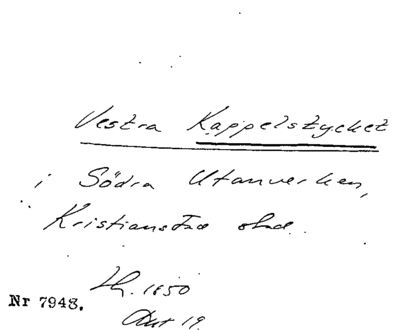 Vestra Kappelstycket
i Södra Utanverken,
Kristianstad stad.
Lh. 1850
Nr 7948.
Akt 19.